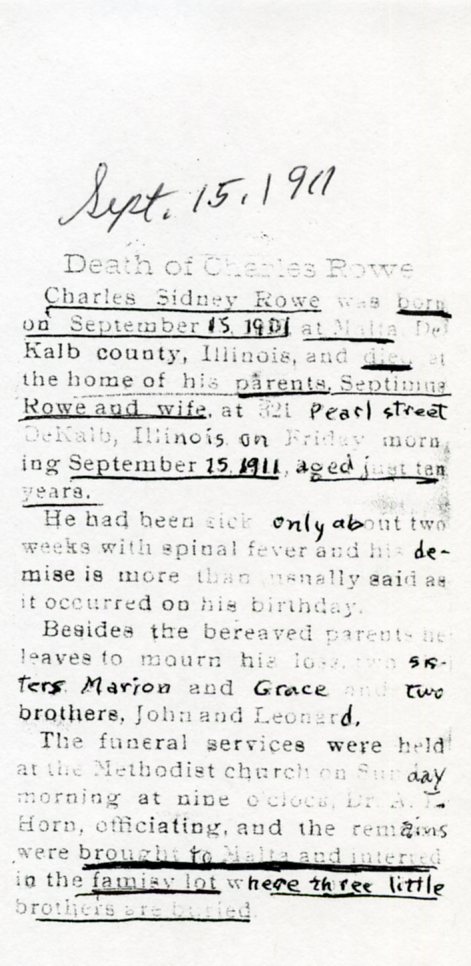 Sept. 15, 1911
Death of Charles Rowe
Charles Sidney Rowe was born
on September 15, 1901 at Malta, De
Kalb county, Illinois, and died at
the home of his parents, Septimus
Rowe and wife, at 321 Pearl street
DeKalb, Illinois on Friday morn,
ing September 15, 1911, aged just ten
years.
He had been sick only about two
weeks with spinal fever and his de-
mise is more than usually said as
it occurred on his birthday.
Besides the bereaved parents he
leaves to mourn his loss, two sis-
ters Marion and Grace and two
brothers, John and Leonard.
The funeral services were held
at the Methodist church on Sunday
morning at nine o'clock, Dr. A.
Horn, officiating, and the remains
were brought to Malta and interred
in the famisy lot where three little
brothers are buried.